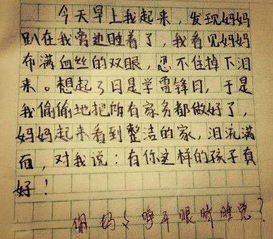 今天早上我起来，发现妈妈
趴在我旁边睡着了，我看见妈妈
布满血丝的双眼，忍不住掉下泪
来。想起了日是学雷锋日，于是
我偷偷地把所有家务都做好了，
妈妈起来看到整洁的家，泪流满
面，对我说：有你这样的孩子真
好！
你妈，睁开眼睛睡觉？